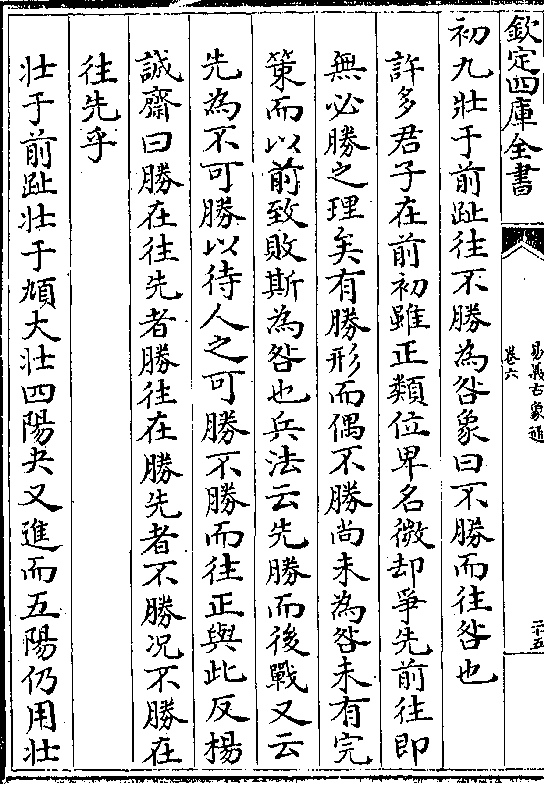 欽定四庫全書
易義古象通
卷六
二十五
初九壯于前趾往不勝為咎象曰不勝而往咎也
許多君子在前初雖正類位卑名微却爭先前往即
無必勝之理矣有勝形而偶不勝尚未為咎未有完
策而以前致敗斯為咎也兵法云先勝而後戰又云
先為不可勝以待人之可勝不勝而往正與此反楊
誠齋曰勝在往先者勝往在勝先者不勝况不勝在
往先乎
壮于前趾壮于頄大壮四陽夬又進而五陽仍用壮